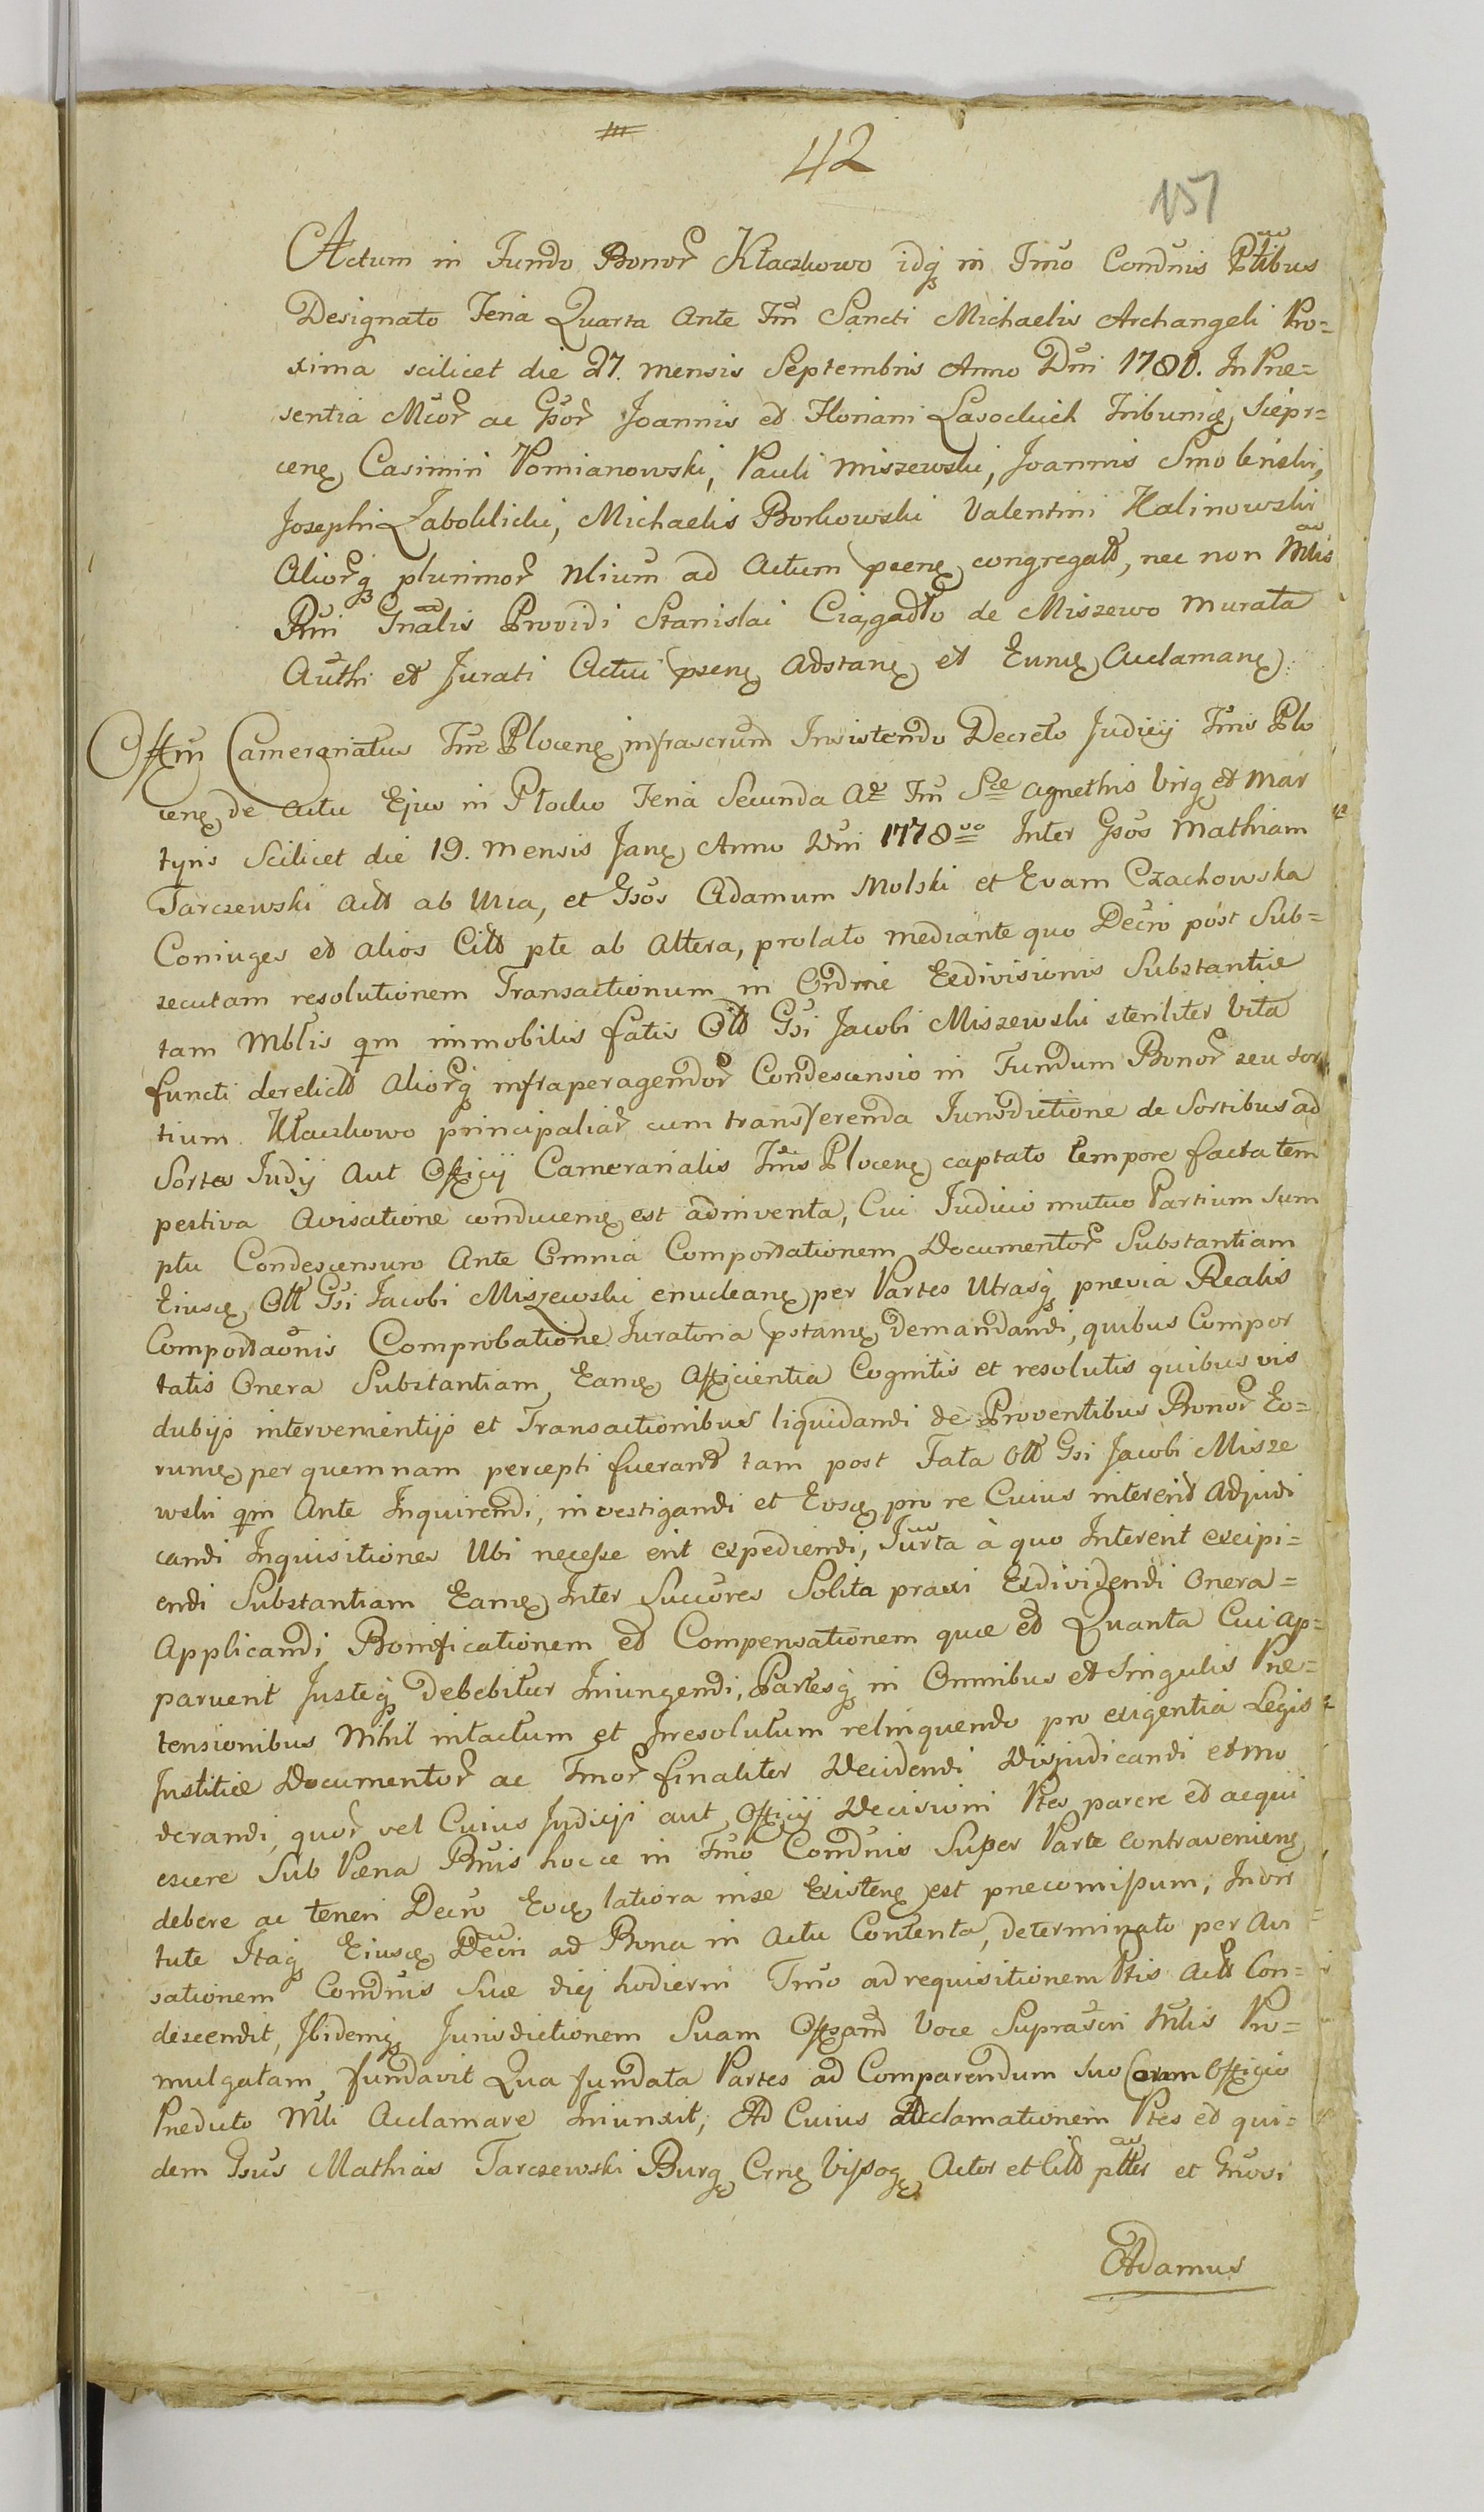 42
157
Actum in Fundo Bonor Kłaczkowo idq in Tmo Condnis Ptibus
Designato Feria Quarta Ante Fm Sancti Michaelis Archangeli Pro=
xima scilicet die 27. mensis Septembris Anno Dni 1780. In Præ=
sentia Mcor ac Gsor Joannis et Floriani Lasockich Tribuni Siepr=
cen Casimiri Pomianowski, Pauli Miszewski, Joannis Smoleński,
Josephi Zaboklicki, Michaelis Borkowski Valentini Kalinowski
Aliorq plurimor Nlium ad Actum psen congregatt, nec non Mlis
Rni Gnalis Providi Stanislai Ciągadło de Miszewo Murata
Authi et Jurati Actui psen Adstan et Eum Acclaman
Offm Camerariatus Tme Plocen infrascrum Insistendo Decreto Judicy Tmis Plo
cen de actu Ejus in Płocko Feria Secunda Ae Fm Sce Agnethis Virg et Mar
tyris Scilicet die 19. mensis Jan Anno Dni 1778vo Inter Gsos Mathiam
Tarczewski Actt ab Una, et Gsos Adamum Molski et Evam Czachowska
Coniuges et alios Citt pte ab Altera, prolato mediante quo Decro post Sub=
secutam resolutionem Transactionum in Ordine Exdivisionis Substantiæ
tam Mblis qm immobilis fatis Olt Gsi Jacobi Miszewski steriliter Vita
functi derelictt Aliorq infraperagendor Condescensio in Fundum Bonor seu sor
tium Kłaczkowo principaliar cum transferenda Iurisdictione de Sortibus ad
Sortes Iudy Aut Officy Camerarialis Tmis Plocen captato tempore facta tem
pestiva Avisatione conducen est adinventa, Cui Iudicio mutuo Partium Sum
ptu Condescensuro Ante Omnia Comportationem Documentor Substantiam
Eiusc Olt Gsi Jacobi Miszewski enuclean per Partes Utrasq prævia Realis
Comportaonis Comprobatione Iuratoria pstan demandandi, quibus Compor
tatis Onera Substantiam Eam Afficientia Cognitis et resolutis quibusvis
dubijs intervenientijs et Transactionibus liquidandi de Proventibus Bonor Eo=
rum per quemnam percepti fuerant tam post Fata Olt Gsi Jacobi Misze
wski qm Ante Inquirendi, investigandi et Eosc pro re Cuius intererit Adjudi
candi Inquisitiones Ubi necesse erit expediendi, Iurta à quo Intererit excipi=
endi Substantiam Eam Inter Succores Solita praxi Exdividendi Onera=
Applicandi Bonificationem et Compensationem quæ et Quanta Cui ap=
paruerit Justeq debebitur Iniungendi, Partesq in Omnibus et Singulis Præ=
tensionibus Nihil intactum et Irresolutum relinquendo pro exigentia Legis
Justitiæ Documentor ac Tmor finaliter Decidendi Disjudicandi et mo
derandi, quor vel Cuius Judicji aut Officy Decisioni Ptes parere et acqui
escere Sub Pæna Bnis hocce in Tmo Condnis Super Parte contravenien
debere ac teneri Decro Eoc latiora in se Existen est præcomissum, In vir
tute Itaq Eiusc Decri ad Bona in Actu Contenta, determinato per Avi
sationem Condnis Suæ diej hodierni Tmo ad requisitionem Ptis Actt Con=
descendit, Ibidemq Jurisdictionem Suam Offosam Voce Suprascri Mlis Pro=
mulgatam fundavit Qua fundata Partes ad Comparendum Suo Coram Officio
Præducto Mli Acclamare Iniunxit, Ad Cuius Acclamationem Ptes et qui=
dem Gsus Mathias Tarczewski Burg Crn Vissog Actor et Citt ptter et Gnosi
Adamus